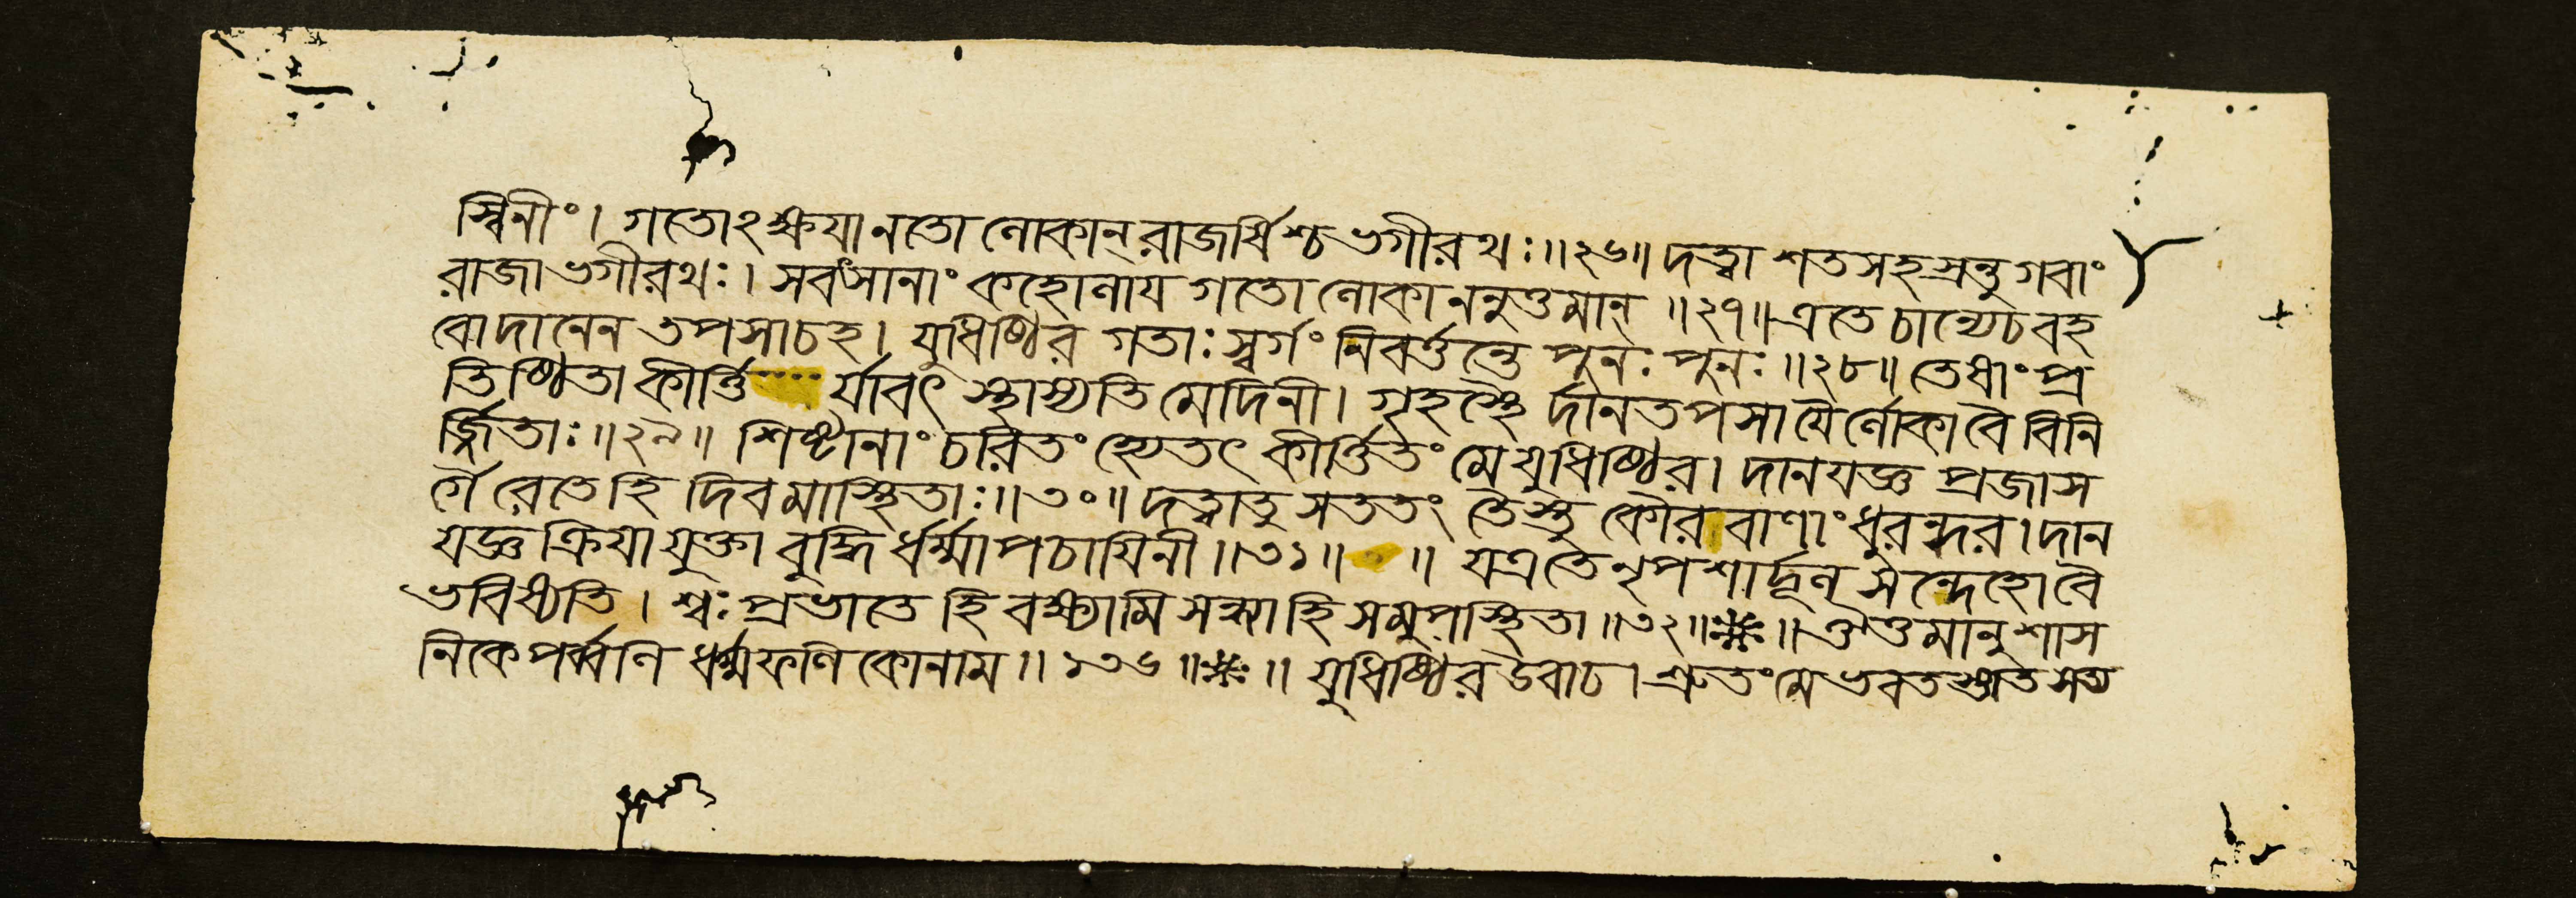 স্বিনীং। গতোঽক্ষয়ানতো লোকান্ রাজর্ষিশ্চ ভগীরথঃ॥২৬॥ দত্ত্বা শতসহস্রন্তু গবাং
রাজা ভগীরথঃ। সবৎসানাং কহোলায় গতো লোকাননুত্তমান্॥২৭॥ এতে চান্যে চ বহ
বো দানেন তপসা চ হ। যুধিষ্ঠির গতাঃ স্বর্গং নিবর্ত্তন্তে পুনঃ পুনঃ॥২৮॥ তেষাং প্র
তিষ্ঠিতা কীর্ত্তি র্যাবৎ স্থাস্যতি মেদিনী। গৃহস্থৈ র্দানতপসা যৈর্লোকা বৈ বিনি
র্জ্জিতাঃ॥২৯॥ শিষ্টানাং চরিতং হ্যেতৎ কীর্ত্তিতং মে যুধিষ্ঠির। দানযজ্ঞ প্রজাস
র্গৈ রেতে হি দিবমাস্থিতাঃ॥৩০॥ দত্ত্বা তু সততং তৈস্তু কৌরবাণাং ধুরন্দর। দান
যজ্ঞক্রিয়াযুক্তা বুদ্ধি র্ধর্ম্মাপচায়িনী॥৩১॥ ॥ যত্র তে নৃপশার্দ্দূল সন্দেহো বৈ
ভবিষ্যতি। শ্বঃ প্রভাতে হি বক্ষ্যামি সন্ধ্যা হি সমুপস্থিতা॥৩২॥※॥ ঐত্তমানুশাস
নিকে পর্ব্বণি ধর্ম্মফণিকোনাম॥১৩৬॥※॥ যুধিষ্ঠির উবাচ। শ্রুতং মে ভবতস্তাত সত্য